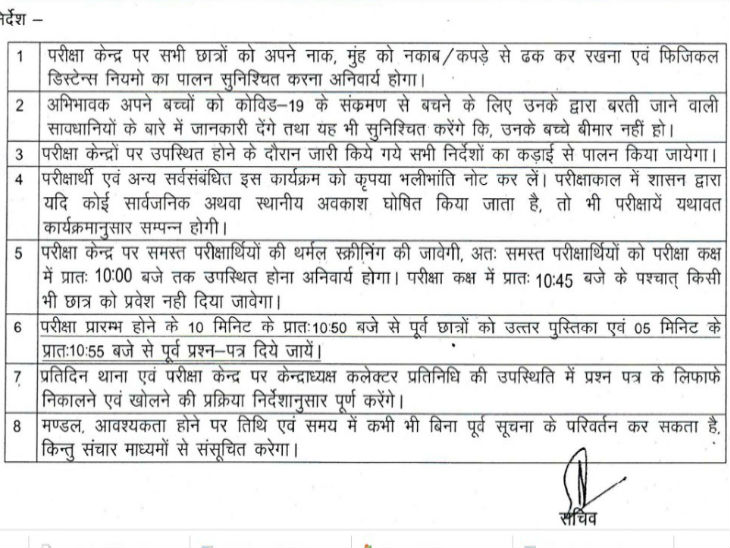 निर्देश –
1 परीक्षा केन्द्र पर सभी छात्रों को अपने नाक, मुंह को नकाब/कपड़े से ढक कर रखना एवं फिजिकल
डिस्टेन्स नियमो का पालन सुनिश्चित करना अनिवार्य होगा।
2 अभिभावक अपने बच्चों को कोविड–19 के संक्रमण से बचने के लिए उनके द्वारा बरती जाने वाली
सावधानियों के बारे में जानकारी देंगे तथा यह भी सुनिश्चित करेंगे कि, उनके बच्चे बीमार नहीं हो।
3 परीक्षा केन्द्रों पर उपस्थित होने के दौरान जारी किये गये सभी निर्देशों का कड़ाई से पालन किया जायेगा।
4 परीक्षार्थी एवं अन्य सर्वसंबंधित इस कार्यक्रम को कृपया भलीभांति नोट कर लें। परीक्षाकाल में शासन द्वारा
यदि कोई सार्वजनिक अथवा स्थानीय अवकाश घोषित किया जाता है, तो भी परीक्षायें यथावत
कार्यक्रमानुसार सम्पन्न होगी।
5 परीक्षा केन्द्र पर समस्त परीक्षार्थियों की थर्मल स्क्रीनिंग की जावेगी, अतः समस्त परीक्षार्थियों को परीक्षा कक्ष
में प्रातः 10:00 बजे तक उपस्थित होना अनिवार्य होगा। परीक्षा कक्ष में प्रातः 10:45 बजे के पश्चात् किसी
भी छात्र को प्रवेश नही दिया जावेगा।
6 परीक्षा प्रारम्भ होने के 10 मिनिट के प्रातः10:50 बजे से पूर्व छात्रों को उत्तर पुस्तिका एवं 05 मिनिट के
प्रातः10:55 बजे से पूर्व प्रश्न–पत्र दिये जायें।
7 प्रतिदिन थाना एवं परीक्षा केन्द्र पर केन्द्राध्यक्ष कलेक्टर प्रतिनिधि की उपस्थिति में प्रश्न पत्र के लिफाफे
निकालने एवं खोलने की प्रक्रिया निर्देशानुसार पूर्ण करेंगे।
8 मण्डल, आवश्यकता होने पर तिथि एवं समय में कभी भी बिना पूर्व सूचना के परिवर्तन कर सकता है,
किन्तु संचार माध्यमों से संसूचित करेगा।
सचिव